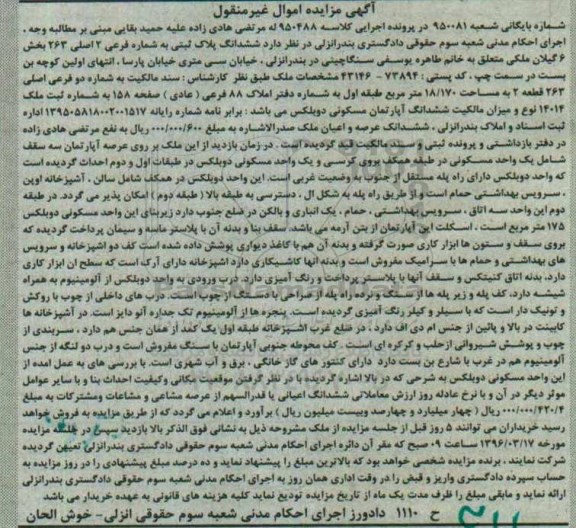 آگهی مزایده اموال غیرمنقول
شماره بایگانی شعبه ۹۵۰۰۸۱ در پرونده اجرایی کلاسه ۹۵۰۴۸۸ له مرتضی هادی زاده علیه حمید بقایی مبنی بر مطالبه وجه ،
اجرای احکام مدنی شعبه سوم حقوقی دادگستری بندرانزلی در نظر دارد ششدانگ پلاک ثبتی به شماره فرعی ۲ اصلی ۲۶۳ بخش
۶ گیلان ملکی متعلق به خانم طاهره یوسفی سنگاچینی در بندرانزلی ، خیابان سی متری خیابان پارسا ، انتهای اولین کوچه بن
بست در سمت چپ ، کد پستی : ۷۳۸۹۴ - ۴۳۱۴۶ مشخصات ملک طبق نظر کارشناس : سند مالکیت به شماره دو فرعی اصلی
۲۶۳ قطعه ۲ به مساحت ۱۸/۱۷۰ متر مربع طبقه اول به شماره دفتر املاک ۸۸ فرعی ( عادی ) صفحه ۱۵۸ به شماره ثبت ملک
۱۴۰۱۴ نوع و میزان مالکیت ششدانگ آپارتمان مسکونی دوبلکس می باشد : برابر نامه شماره رایانه ۱۳۹۵۰۵۸۱۸۰۰۲۰۰۱۵۱۷ اداره
ثبت اسناد و املاک بندرانزلی ، ششدانگ عرصه و اعیان ملک صدرالاشاره به مبلغ ۶۰۰/۰۰۰/۰۰۰ ریال به نفع مرتضی هادی زاده
در دفتر بازداشتی و پرونده ثبتی و سند مالکیت قید گردیده است . در زمان بازدید از این ملک بر روی عرصه آپارتمان سه سقف
شامل یک واحد مسکونی در طبقه همکف بروی کرسی و یک واحد مسکونی دوبلکس در طبقات اول و دوم احداث گردیده است
که واحد دوبلکس دارای راه پله مستقل از جنوب با وضعیت غربی است. این واحد دوبلکس در همکف شامل سالن ، آشپزخانه اوپن
، سرویس بهداشتی حمام است. و از طریق راه پله به شکل ال ، دسترسی به طبقه بالا ( طبقه دوم ) امکان پذیر می گردد. در طبقه
دوم این واحد سه اتاق ، سرویس بهداشتی ، حمام ، یک انباری و بالکن در ضلع جنوب دارد زیربنای این واحد مسکونی دوبلکس
۱۷۵ متر مربع است . اسکلت این آپارتمان از بتن آرمه می باشد. سقف بنا و بدنه آن با پلاستر ماسه و سیمان پرداخت گردیده که
بروی سقف و ستون ها ابزار کاری صورت گرفته و بدنه آن هم با کاغذ دیواری پوشش داده شده است کف دو آشپزخانه و سرویس
های بهداشتی و حمام ها با سرامیک مفروش است و بدنه آنها کاشیکاری دارد آشپزخانه دارای آرک است که سطح آن ابزار کاری
دارد. بدنه اتاق کنیتکس و سقف آنها با پلاستر پرداخت و رنگ آمیزی دارد درب ورودی به واحد دوبلکس از آلومینیوم به همراه
شیشه دارد. کف پله و زیر پله ها از سنگ و نرده راه پله از صراحی با دستک از چوب است. درب های داخلی از چوب با روکش
و تونیک دار است که با سیلر و کیلر رنگ آمیزی گردیده است. پنجره ها از آلومینیوم تک جداره آنو دایز است. در آشپزخانه ها
کابینت در بالا و پائین از جنس ام دی اف دارد ، در ضلع غرب آشپزخانه طبقه اول یک کمد از همان جنس هم دارد ، سربندی از
چوب و پوشش شیروانی از حلب و کرکره ای است . کف محوطه جنوبی آپارتمان با سنگ مفروش است و درب دو لنگه از جنس
آلومینیوم هم در غرب با شارع بن بست دارد دارای کنتور های گاز خانگی ، برق و آب شهری است. با بررسی های به عمل آمده از
این واحد مسکونی دوبلکس به شرحی که در بالا اشاره گردیده با در نظر گرفتن موقعیت مکانی وکیفیت احداث بنا و با سایر عوامل
موثر دیگر در آن و با نرخ عادله روز ارزش معاملاتی ششدانگ اعیانی با قدرالسهم از عرصه مشاعی و مشاعات ومشترکات به مبلغ
۴۲۰/۴/۰۰۰/۰۰۰ ریال ( چهار میلیارد و چهارصد وبیست میلیون ریال ) برآورد و اعلام می گردد که از طریق مزایده به فروش خواهد
رسید خریداران می توانند ۵ روز قبل از جلسه مزایده از ملک مشروحه ذیل به نشانی فوق الذکر بالا بازدید سپس در جلسه مزایده
مورخه ۱۳۹۶/۰۳/۱۷ ساعت ۰۹ صبح که مقر آن دائره اجرای احکام مدنی شعبه سوم حقوقی دادگستری بندرانزلی تعیین گردیده
شرکت نمایند ، برنده مزایده شخصی خواهد بود که بالاترین مبلغ را پیشنهاد نماید و ده درصد مبلغ پیشنهادی را در روز مزایده به
حساب سپرده دادگستری واریز و قبض را در وقت اداری همان روز به اجرای احکام مدنی شعبه سوم حقوقی دادگستری بندرانزلی
ارائه نماید و مابقی مبلغ را ظرف مدت یک ماه از تاریخ مزایده تودیع نماید کلیه هزینه های قانونی به عهده خریدار می باشد
ح ۱۱۱۰ دادورز اجرای احکام مدنی شعبه سوم حقوقی انزلی- خوش الحان